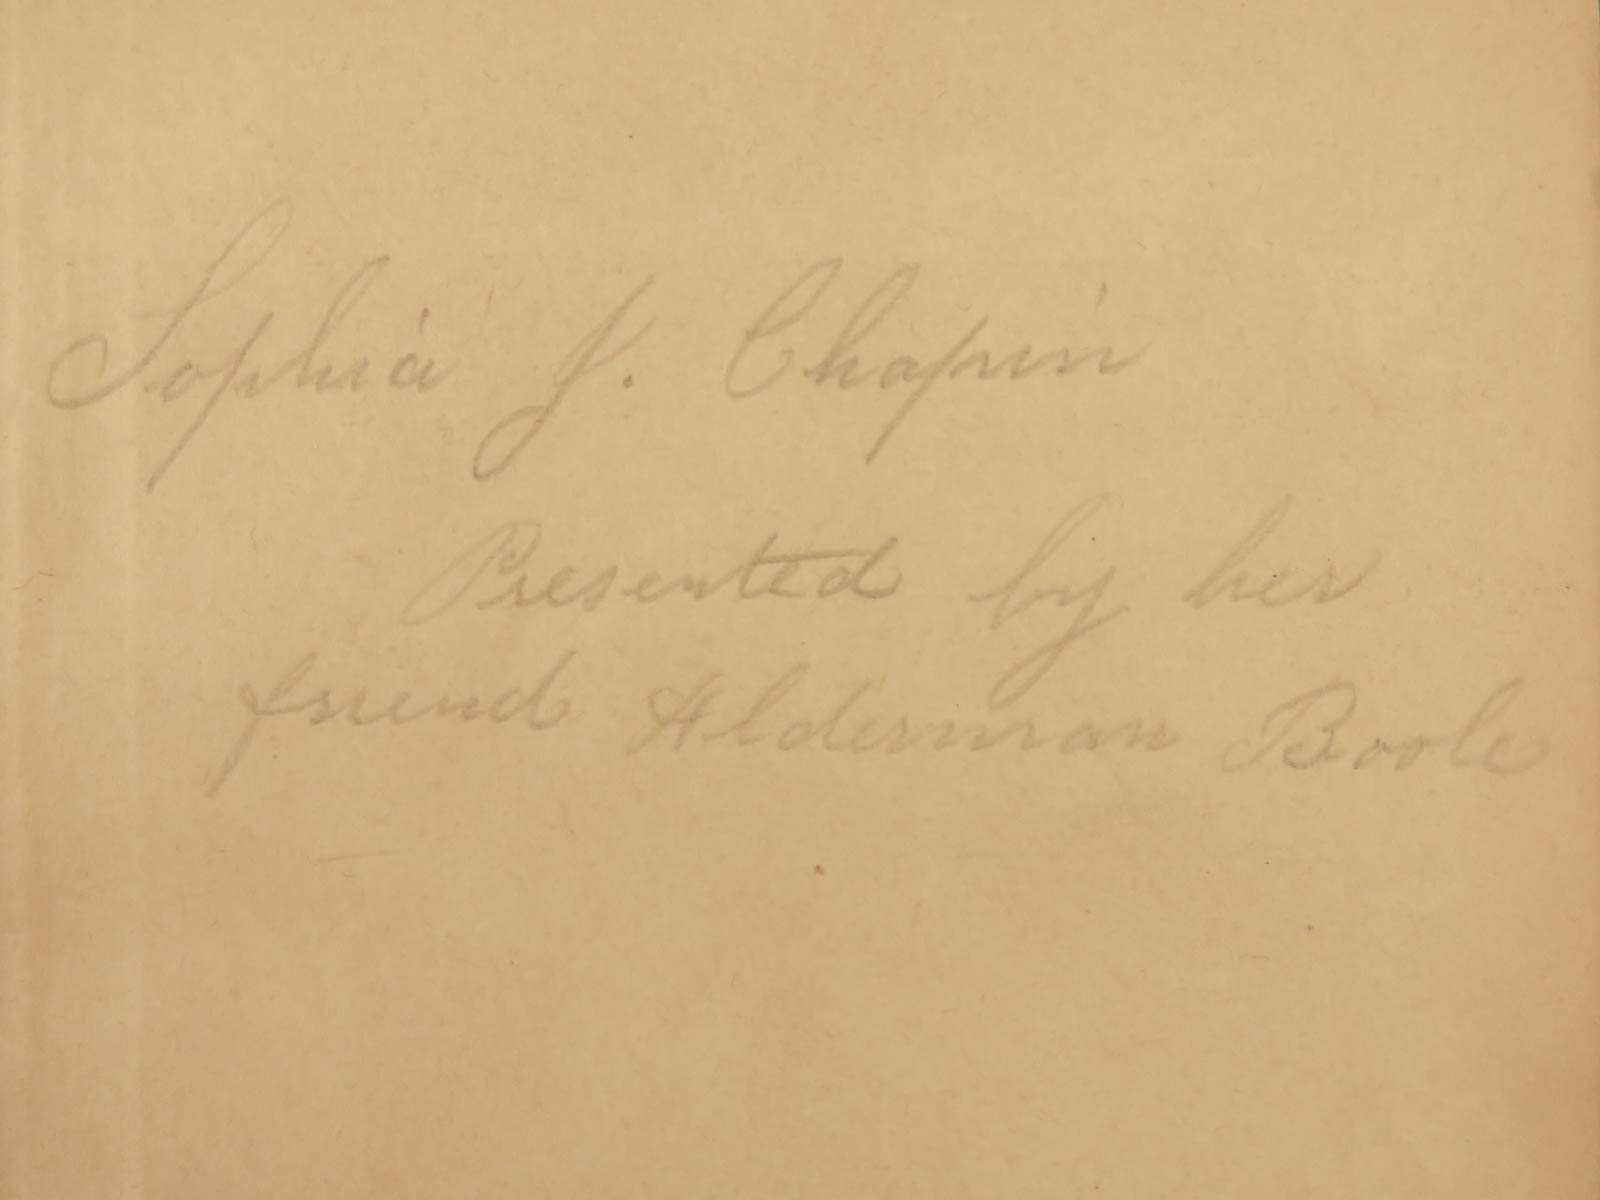 Sophia J. Chapin
Presented by her
friend Alderman Boole